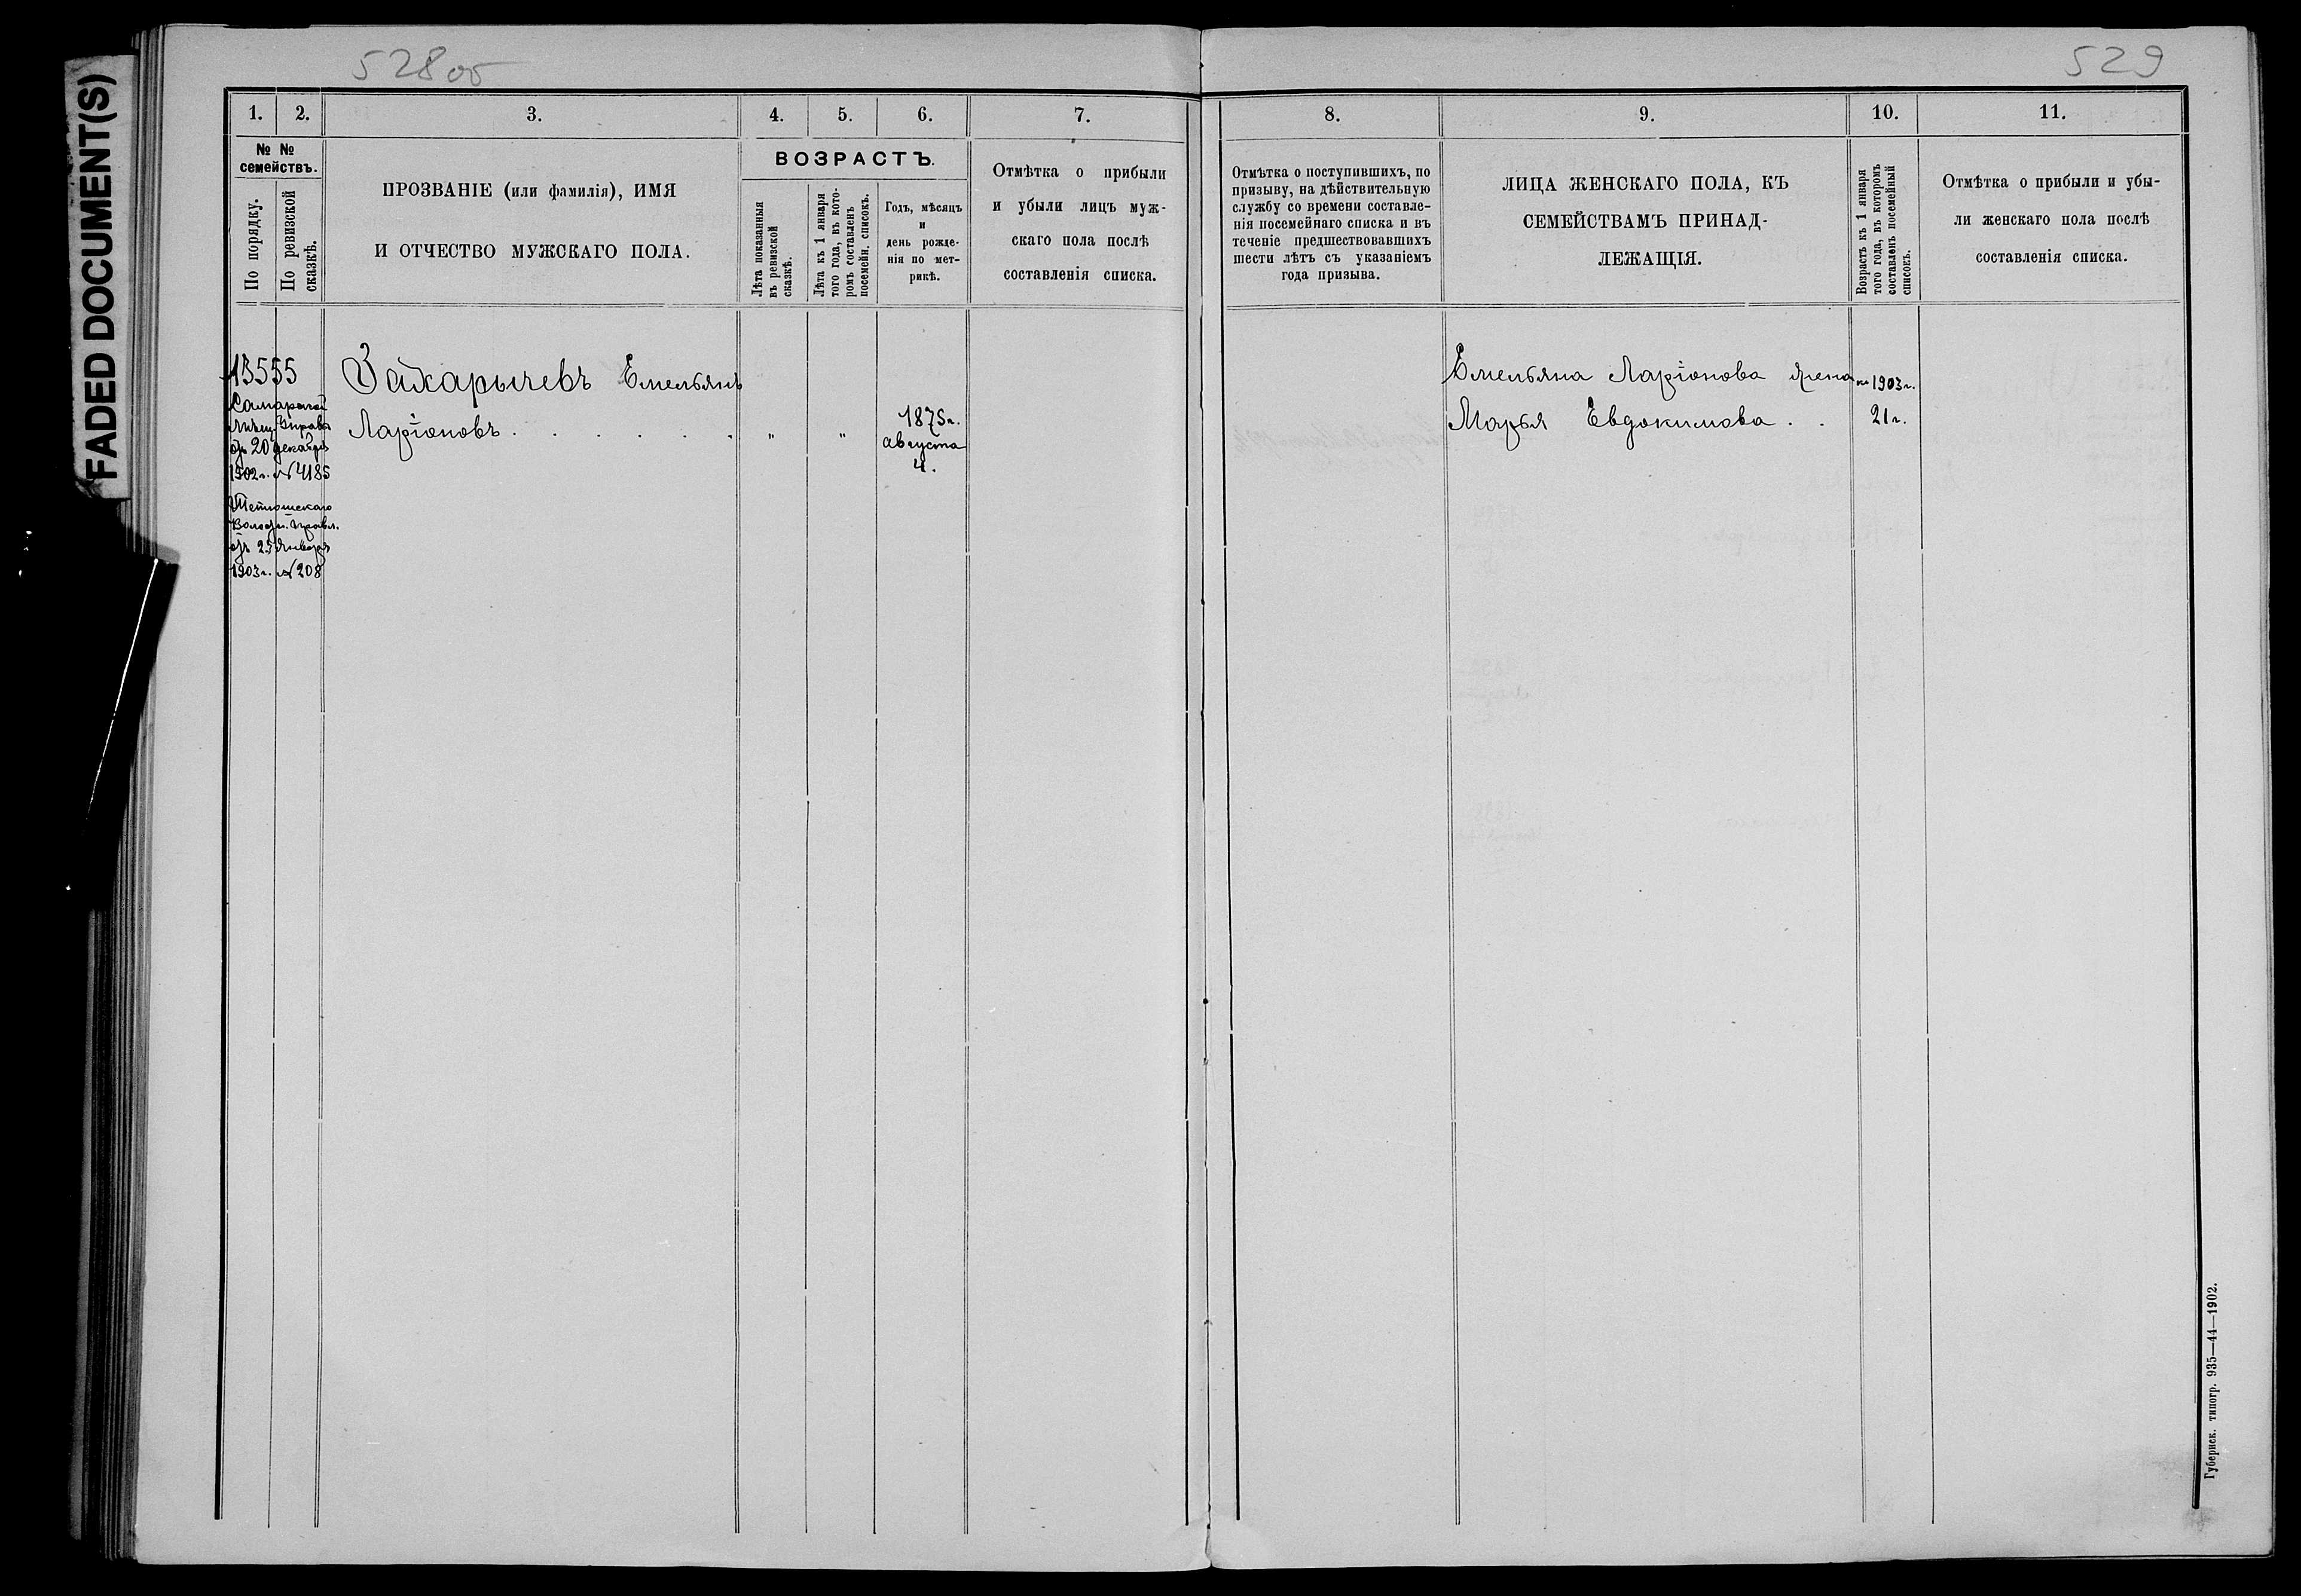 FADED DOCUMENT(S)
528об
529
1. 2. 3. 4. 5. 6. 7. 8. 9. 10. 11.
№ №
семействъ.
По порядку.
По ревизской
сказкѣ.
ПРОЗВАНІЕ (или фамилія), ИМЯ
И ОТЧЕСТВО МУЖСКАГО ПОЛА.
ВОЗРАСТЪ.
Лѣта показанныя
въ ревизской
сказкѣ.
Лѣта къ 1 января
того года, въ кото-
ромъ составленъ
посемейн. списокъ.
Годъ, мѣсяцъ
и
день рожде-
нія по мет-
рикѣ.
Отмѣтка о прибыли
и убыли лицъ муж-
скаго пола послѣ
составленія списка.
Отмѣтка о поступившихъ, по
призыву, на дѣйствительную
службу со времени составле-
нія посемейнаго списка и въ
теченіе предшествовавшихъ
шести лѣтъ съ указаніемъ
года призыва.
ЛИЦА ЖЕНСКАГО ПОЛА, КЪ
СЕМЕЙСТВАМЪ ПРИНАД-
ЛЕЖАЩІЯ.
Возрастъ къ 1 января
того года, въ которомъ
составленъ посемейный
списокъ.
Отмѣтка о прибыли и убы-
ли женскаго пола послѣ
составленія списка.
13555
Самарской
Мѣщ. Управы
отъ 20 декабря
1902 г. № 4185
Тетюшскаго
Волостн. Правл.
отъ 25 Января
1903 г. № 208
Захарычевъ Емельянъ
Ларіоновъ . . . . . . . " "
1875 г.
августа
4.
Емельяна Ларіонова жена
Марья Евдокимова . .
на 1903 г.
21 г.
Губернск. типогр. 935—44—1902.